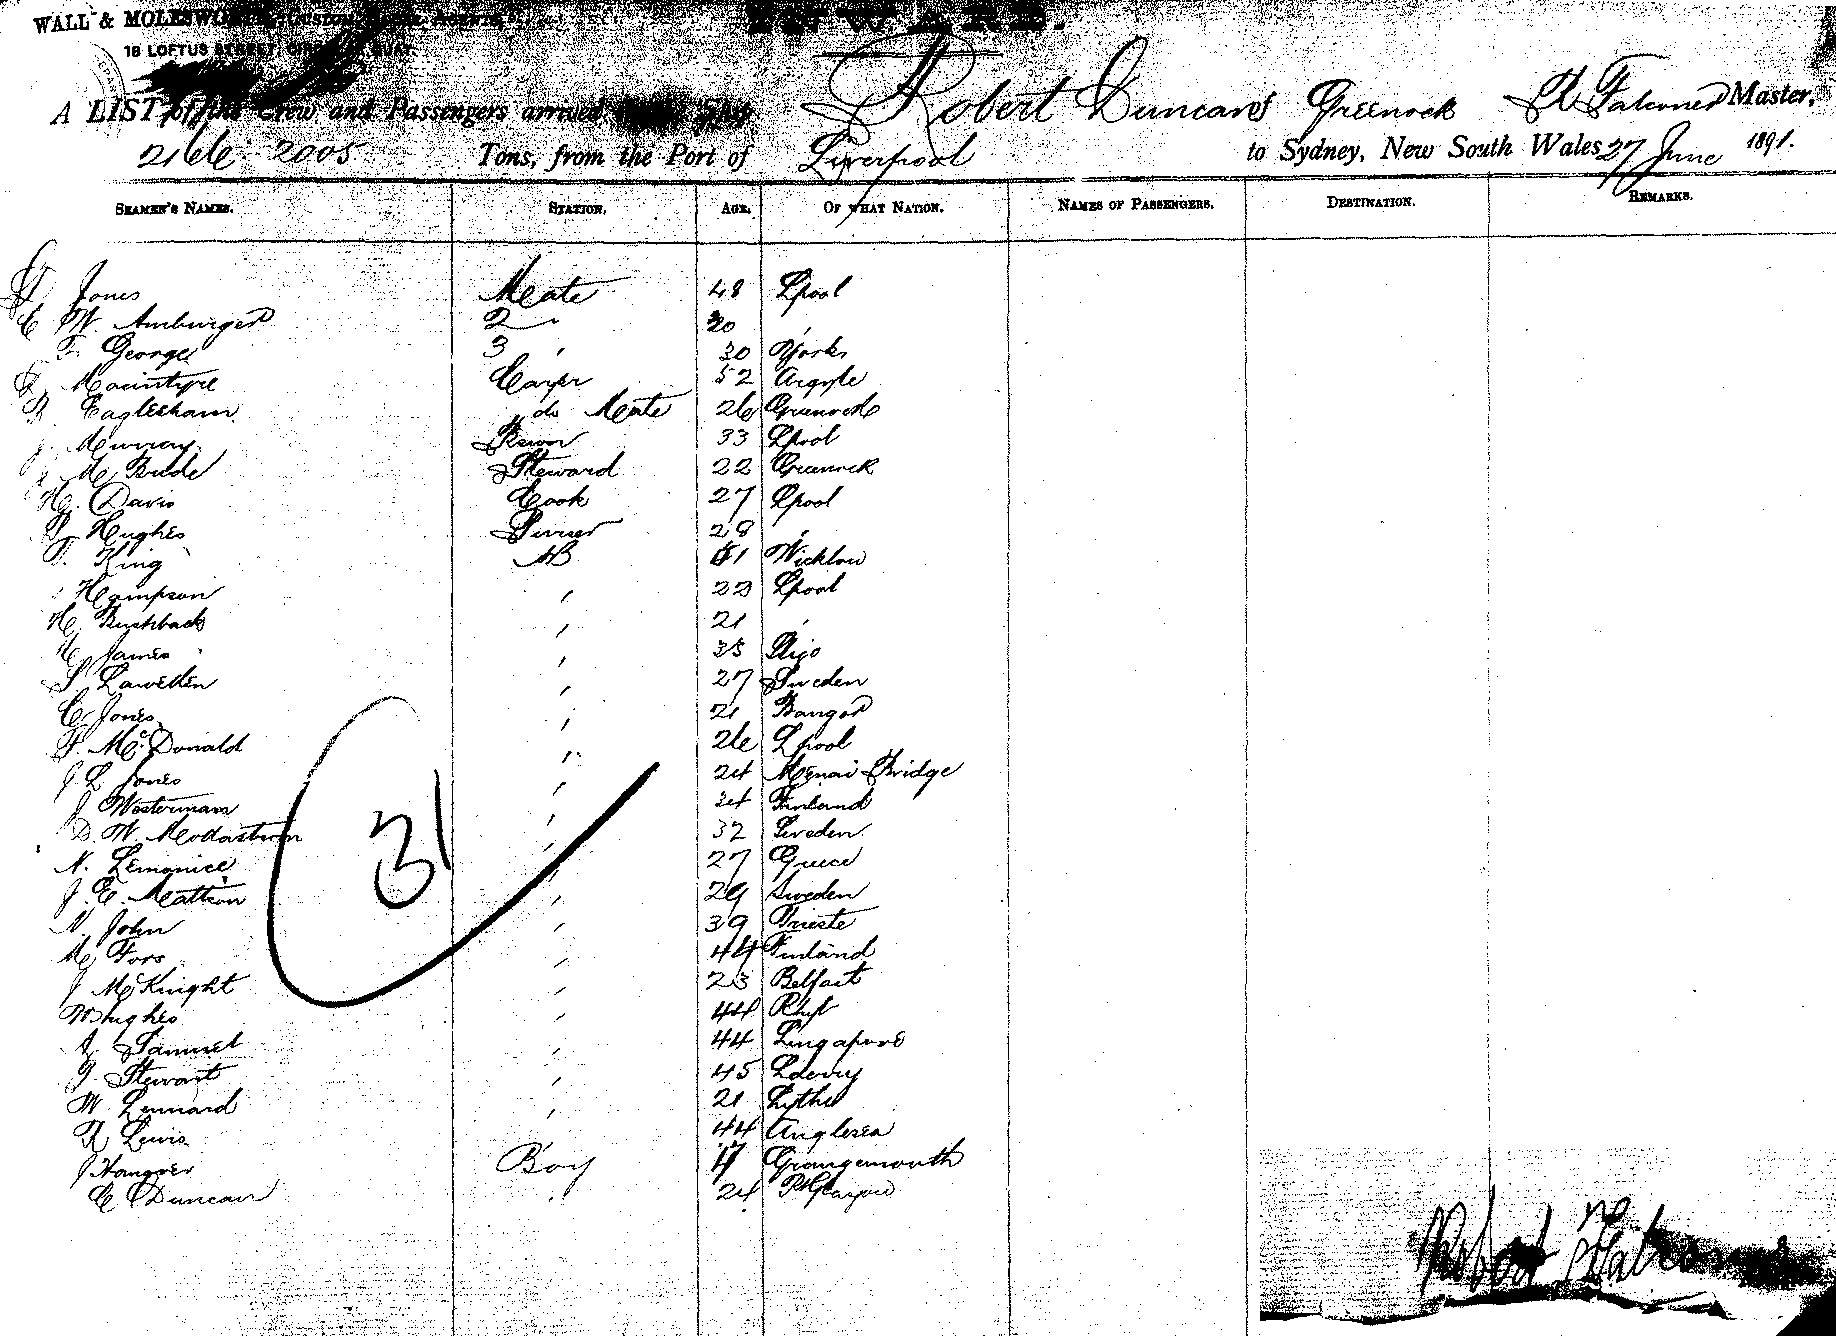 INWARD.
WALL & MOLESWORTH, CUSTOM HOUSE AGENTS,
18 LOFTUS STREET, CIRCULAR QUAY
A LIST of the Crew and Passengers arrived Ship Robert Duncan of Greenock Falconer Master,
2005 Tons, from the Port of Liverpool to Sydney, New South Wales 27 June 1891.
SEAMEN'S NAMES. STATION. AGE. OF WHAT NATION. NAMES OF PASSENGERS. DESTINATION. REMARKS.
Jones Mate 48 Lpool
C W. Amburger 2 " 20 "
F. George 3 " 30 Yorks
Macintyre Carpr 52 Argyle
R Eaglesham do Mate 26 Greenock
J. Murray 33 Lpool
J Mc Bride Steward 22 Greenock
H. Davis Cook 27 Lpool
R Hughes 28 "
T. King AB 41 Wicklow
Hampson " 22 Lpool
H. Bushback " 21 "
H. James " 35
S Lawellin " 27 Sweden
C Jones " 21 Bangor
F. McDonald " 26 Lpool
J. L Jones " 24 Menai Bridge
J Westerman " 24 Finland
D. W. " 32 Sweden
N. Lemonice " 27 Greece
J. E. Mattson " 29 Sweden
N. John " 39 Trieste
M Fors " 44 Finland
J McKnight " 23 Belfast
W Hughes " 44 Rhyl
J Samuel " 44 Singapore
J. Stewart " 45 Lderry
W. Lennard " 21 Lythe
R Lewis " 44 Anglesea
J Hanover Boy 17 Grangemouth
C Duncan " 24 Pt Glasgow
31
Robert Falconer